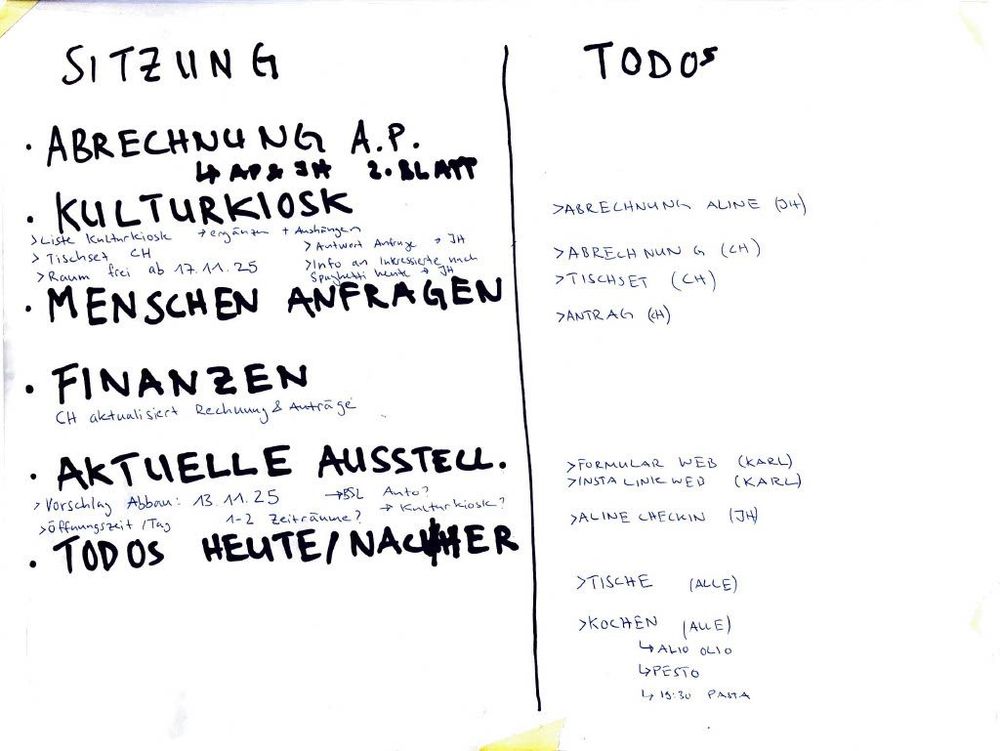 SITZUNG
· ABRECHNUNG A.P.
↳ AP & JH 2. BLATT
· KULTURKIOSK
> Liste Kulturkiosk → ergänzen + Aushängen
> Tischset CH
> Raum frei ab 17.11.25
> Antwort Anfrage → JH
> Info an Interessierte nach
Spaghetti heute → JH
· MENSCHEN ANFRAGEN
· FINANZEN
CH aktualisiert Rechnung & Anträge
· AKTUELLE AUSSTELL.
> Vorschlag Abbau: 13.11.25 → BSL Auto?
→ Kulturkiosk?
> Öffnungszeit / Tag 1-2 Zeiträume?
· TODOS HEUTE/NACHHER
TODOS
> ABRECHNUNG ALINE (JH)
> ABRECHNUNG (CH)
> TISCHSET (CH)
> ANTRAG (CH)
> FORMULAR WEB (KARL)
> INSTA LINK WEB (KARL)
> ALINE CHECKIN (JH)
> TISCHE (ALLE)
> KOCHEN (ALLE)
↳ ALIO OLIO
↳ PESTO
↳ 19:30 PASTA